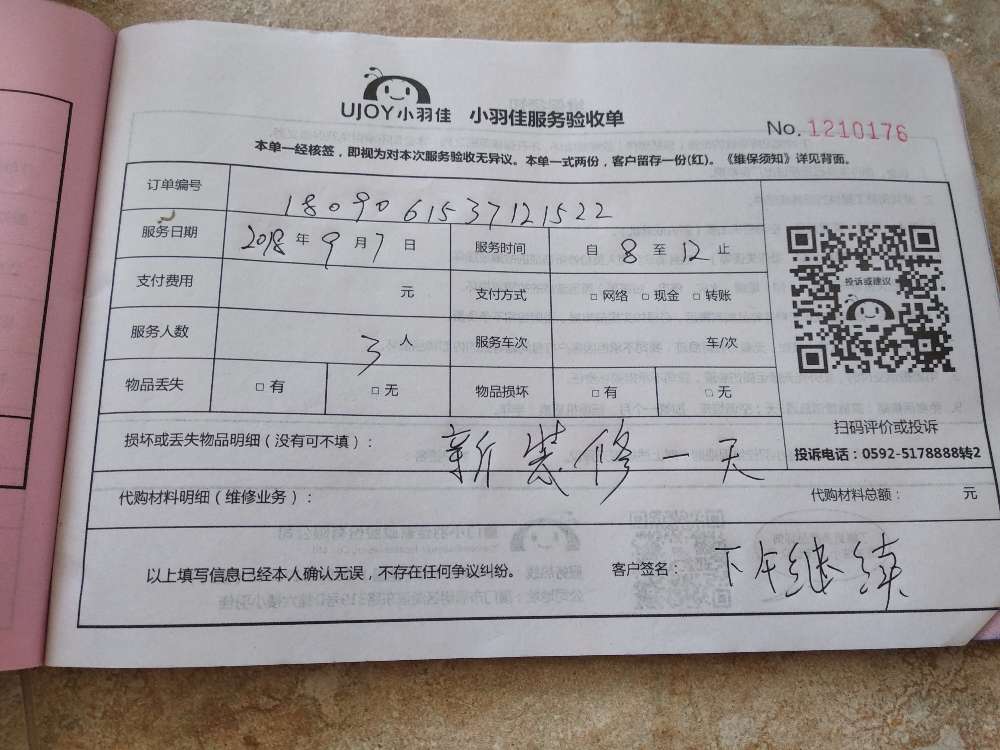 UJOY小羽佳 小羽佳服务验收单
No. 1210176
本单一经核签，即视为对本次服务验收无异议。本单一式两份，客户留存一份(红)。《维保须知》详见背面。
订单编号 1809061537121522
服务日期 2018年9月7日 服务时间 自8至12止
支付费用 元 支付方式 □网络 □现金 □转账
服务人数 3人 服务车次 车/次
物品丢失 □有 □无 物品损坏 □有 □无
投诉或建议
扫码评价或投诉
投诉电话：0592-5178888转2
损坏或丢失物品明细（没有可不填）： 新装修一天
代购材料明细（维修业务）： 代购材料总额： 元
以上填写信息已经本人确认无误，不存在任何争议纠纷。 客户签名： 下午继续